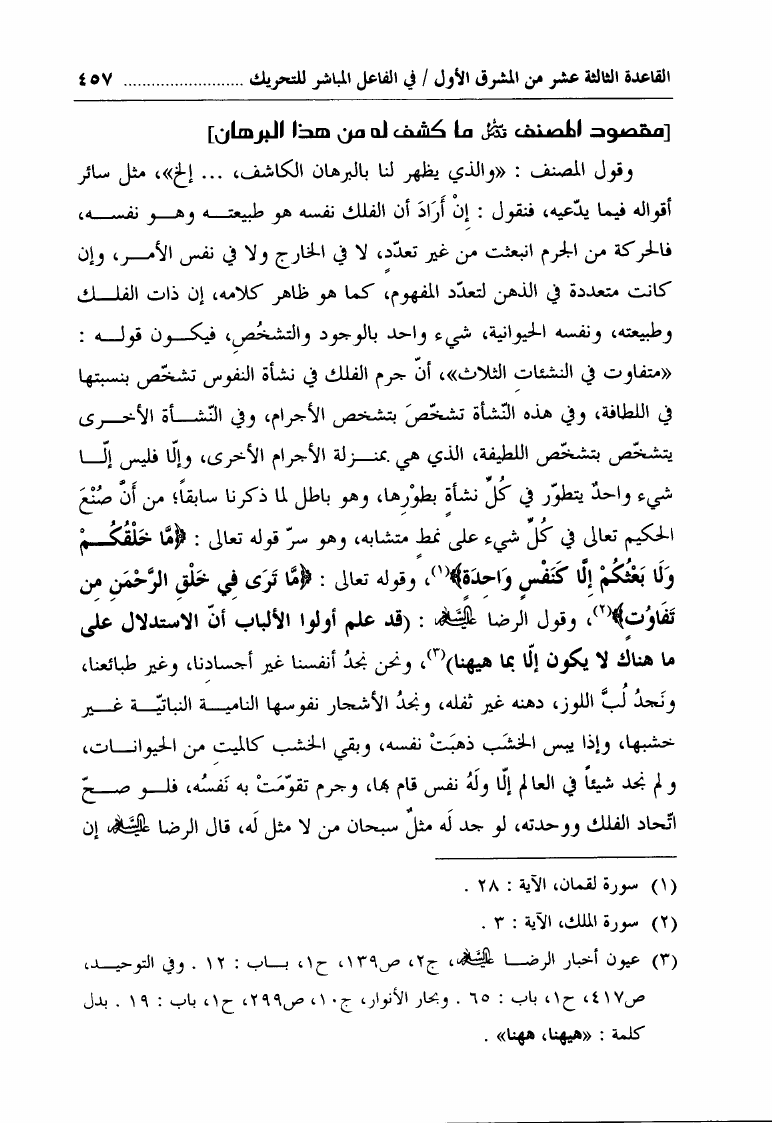 القاعدة الثالثة عشر من المشرق الأول / في الفاعل المباشر للتحريك .......................... ٤٥٧
[مقصود المصنف تدئل ما كشف له من هذا البرهان]
وقول المصنف : «والذي يظهر لنا بالبرهان الكاشف، ... إلخ»، مثل سائر
أقواله فيما يدّعيه، فنقول : إنْ أَرَادَ أن الفلك نفسه هو طبيعتــه وهــو نفســه،
فالحركة من الجِرم انبعثت من غير تعدّدٍ، لا في الخارج ولا في نفس الأمــر، وإن
كانت متعددة في الذهن لتعدّد المفهوم، كما هو ظاهر كلامه، إن ذات الفلــك
وطبيعته، ونفسه الحيوانية، شيء واحد بالوجود والتشخُصِ، فيكــون قولــه :
«متفاوت في النشئات الثلاث»، أنّ جرم الفلك في نشأة النفوس تشخّص بنسبتها
في اللطافة، وفي هذه النّشأة تشخّصَ بتشخص الأجرام، وفي النّشــأة الأخــرى
يتشخّص بتشخّص اللطيفة، الذي هي بمنــزلة الأجرام الأخرى، وإلّا فليس إلّــا
شيء واحدٌ يتطوّر في كُلِّ نشأةٍ بطوْرِها، وهو باطل لما ذكرنا سابقاً؛ من أَنَّ صُنْعَ
الحكيم تعالى في كُلِّ شيء على نمطٍ متشابه، وهو سرّ قوله تعالى : ﴿مَّا خَلْقُكُــمْ
وَلَا بَعْثُكُمْ إِلَّا كَنَفْسٍ وَاحِدَةٍ﴾(١)، وقوله تعالى : ﴿مَّا تَرَى فِي خَلْقِ الرَّحْمَنِ مِن
تَفَاوُتٍ﴾(٢)، وقول الرضا عليه السلام : (قد علم أولوا الألباب أنّ الاستدلال على
ما هناك لا يكون إلّا بما هيهنا)(٣)، ونحن نجدُ أنفسنا غير أجسادِنا، وغير طبائعنا،
ونَجدُ لُبَّ اللوز، دهنه غير ثفله، ونجدُ الأشجار نفوسها الناميــة النباتيّــة غــير
خشبها، وإذا يبس الخشَب ذهبَتْ نفسه، وبقي الخشب كالميتِ من الحيوانــات،
ولم نجد شيئاً في العالم إلّا ولَهُ نفس قام بها، وجرم تقوّمَتْ به نَفسُه، فلــو صــحّ
اتّحاد الفلك ووحدته، لو جد لَه مثلٌ سبحان من لا مثل لَه، قال الرضا عليه السلام إن
(١) سورة لقمان، الآية : ٢٨ .
(٢) سورة الملك، الآية : ٣ .
(٣) عيون أخبار الرضــا عليه السلام، ج٢، ص١٣٩، ح١، بــاب : ١٢ . وفي التوحيــد،
ص٤١٧، ح١، باب : ٦٥ . وبحار الأنوار، ج١٠، ص٢٩٩، ح١، باب : ١٩ . بدل
كلمة : «هيهنا، ههنا» .